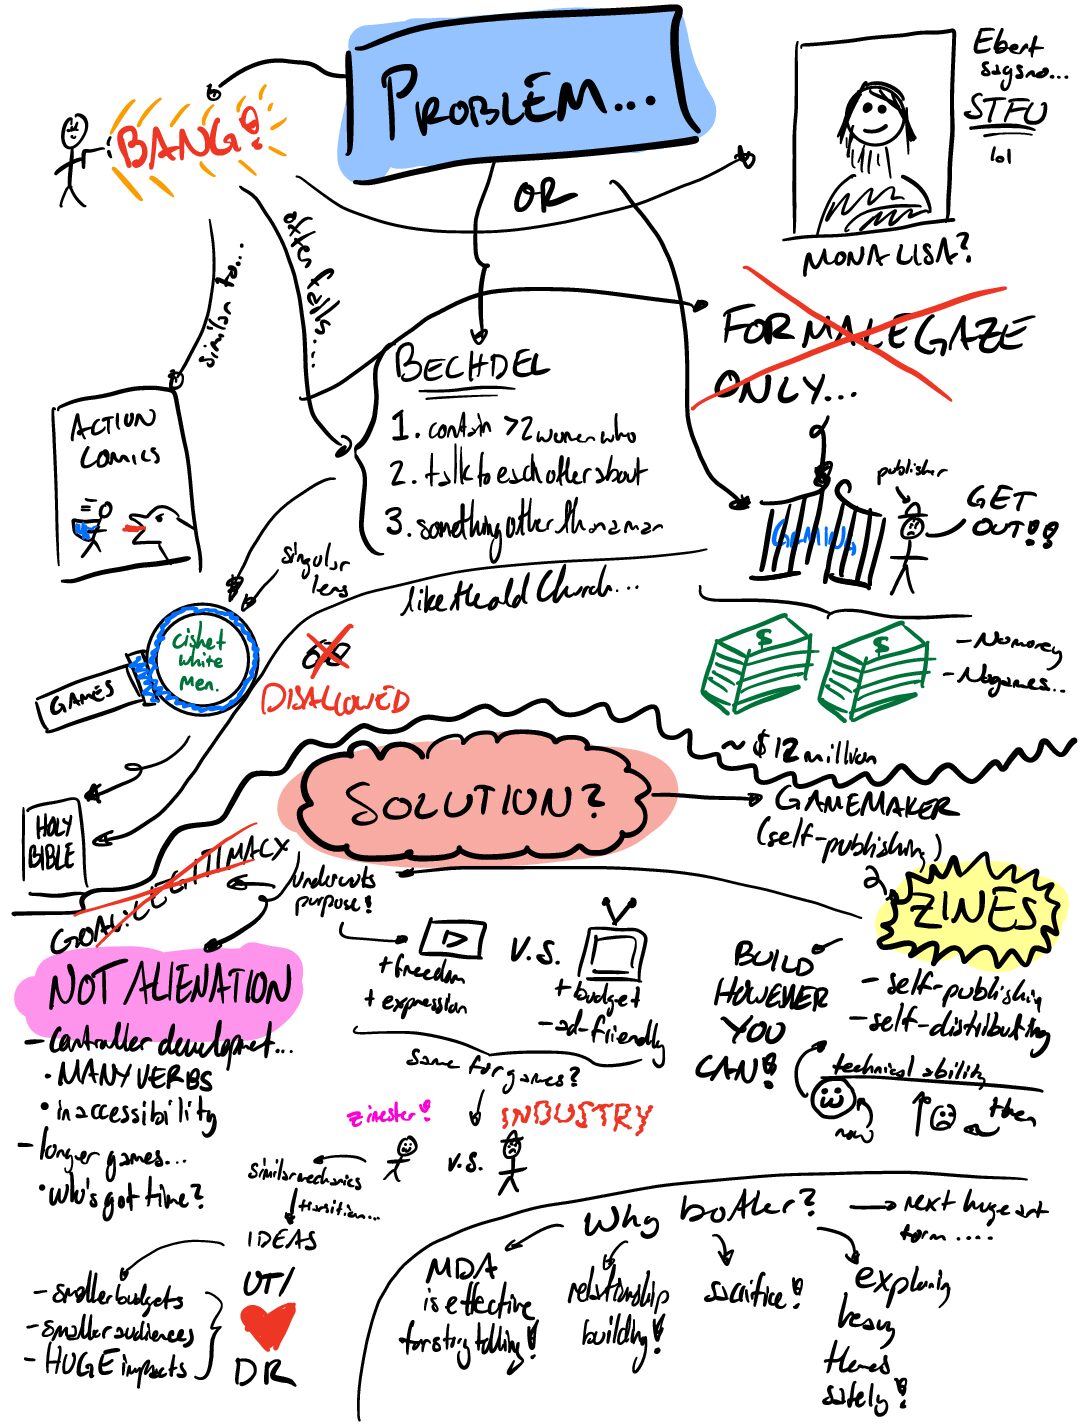 PROBLEM...
BANG!
OR
Ebert
says no...
STFU
lol
MONA LISA?
similar to...
often fails...
FOR MALE GAZE
ONLY...
BECHDEL
1. contain >2 women who
2. talk to each other about
3. something other than a man
ACTION
COMICS
publisher
GET
OUT!!
GAMING
singular
lens
like the old Church...
cishet
white
men.
GAMES
DISALLOWED
$
$
- No money
- No games..
~ $12 million
SOLUTION?
GAMEMAKER
(self-publishing)
HOLY
BIBLE
GOAL: LEGITIMACY
undercuts
purpose!
ZINES
- self-publishin
- self-distributing
BUILD
HOWEVER
YOU
CAN!
technical ability
now
then
NOT ALIENATION
- controller developmet...
• MANY VERBS
• inaccessibility
- longer games...
• who's got time?
+ freedom
+ expression
V.S.
+ budget
- ad-friendly
same for games?
zinester!
INDUSTRY
v.s.
similar mechanics
transition...
IDEAS
UT/
DR
- smaller budgets
- smaller audiences
- HUGE impacts
Why bother?
next huge art
form ....
MDA
is effective
for story telling!
relationship
building!
sacrifice!
explorin
heavy
themes
safely!